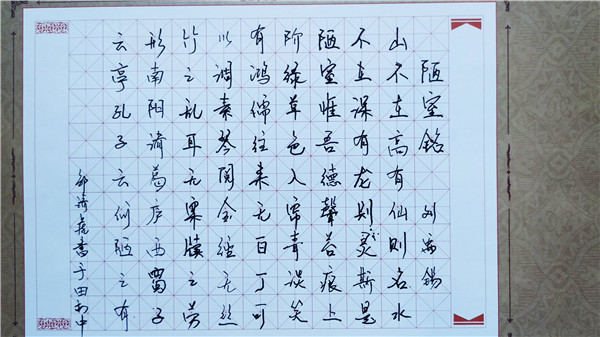 陋室铭 刘禹锡
山不在高有仙则名水
不在深有龙则灵斯是
陋室惟吾德馨苔痕上
阶绿草色入帘青谈笑
有鸿儒往来无白丁可
以调素琴阅金经无丝
竹之乱耳无案牍之劳
形南阳诸葛庐西蜀子
云亭孔子云何陋之有
书于田